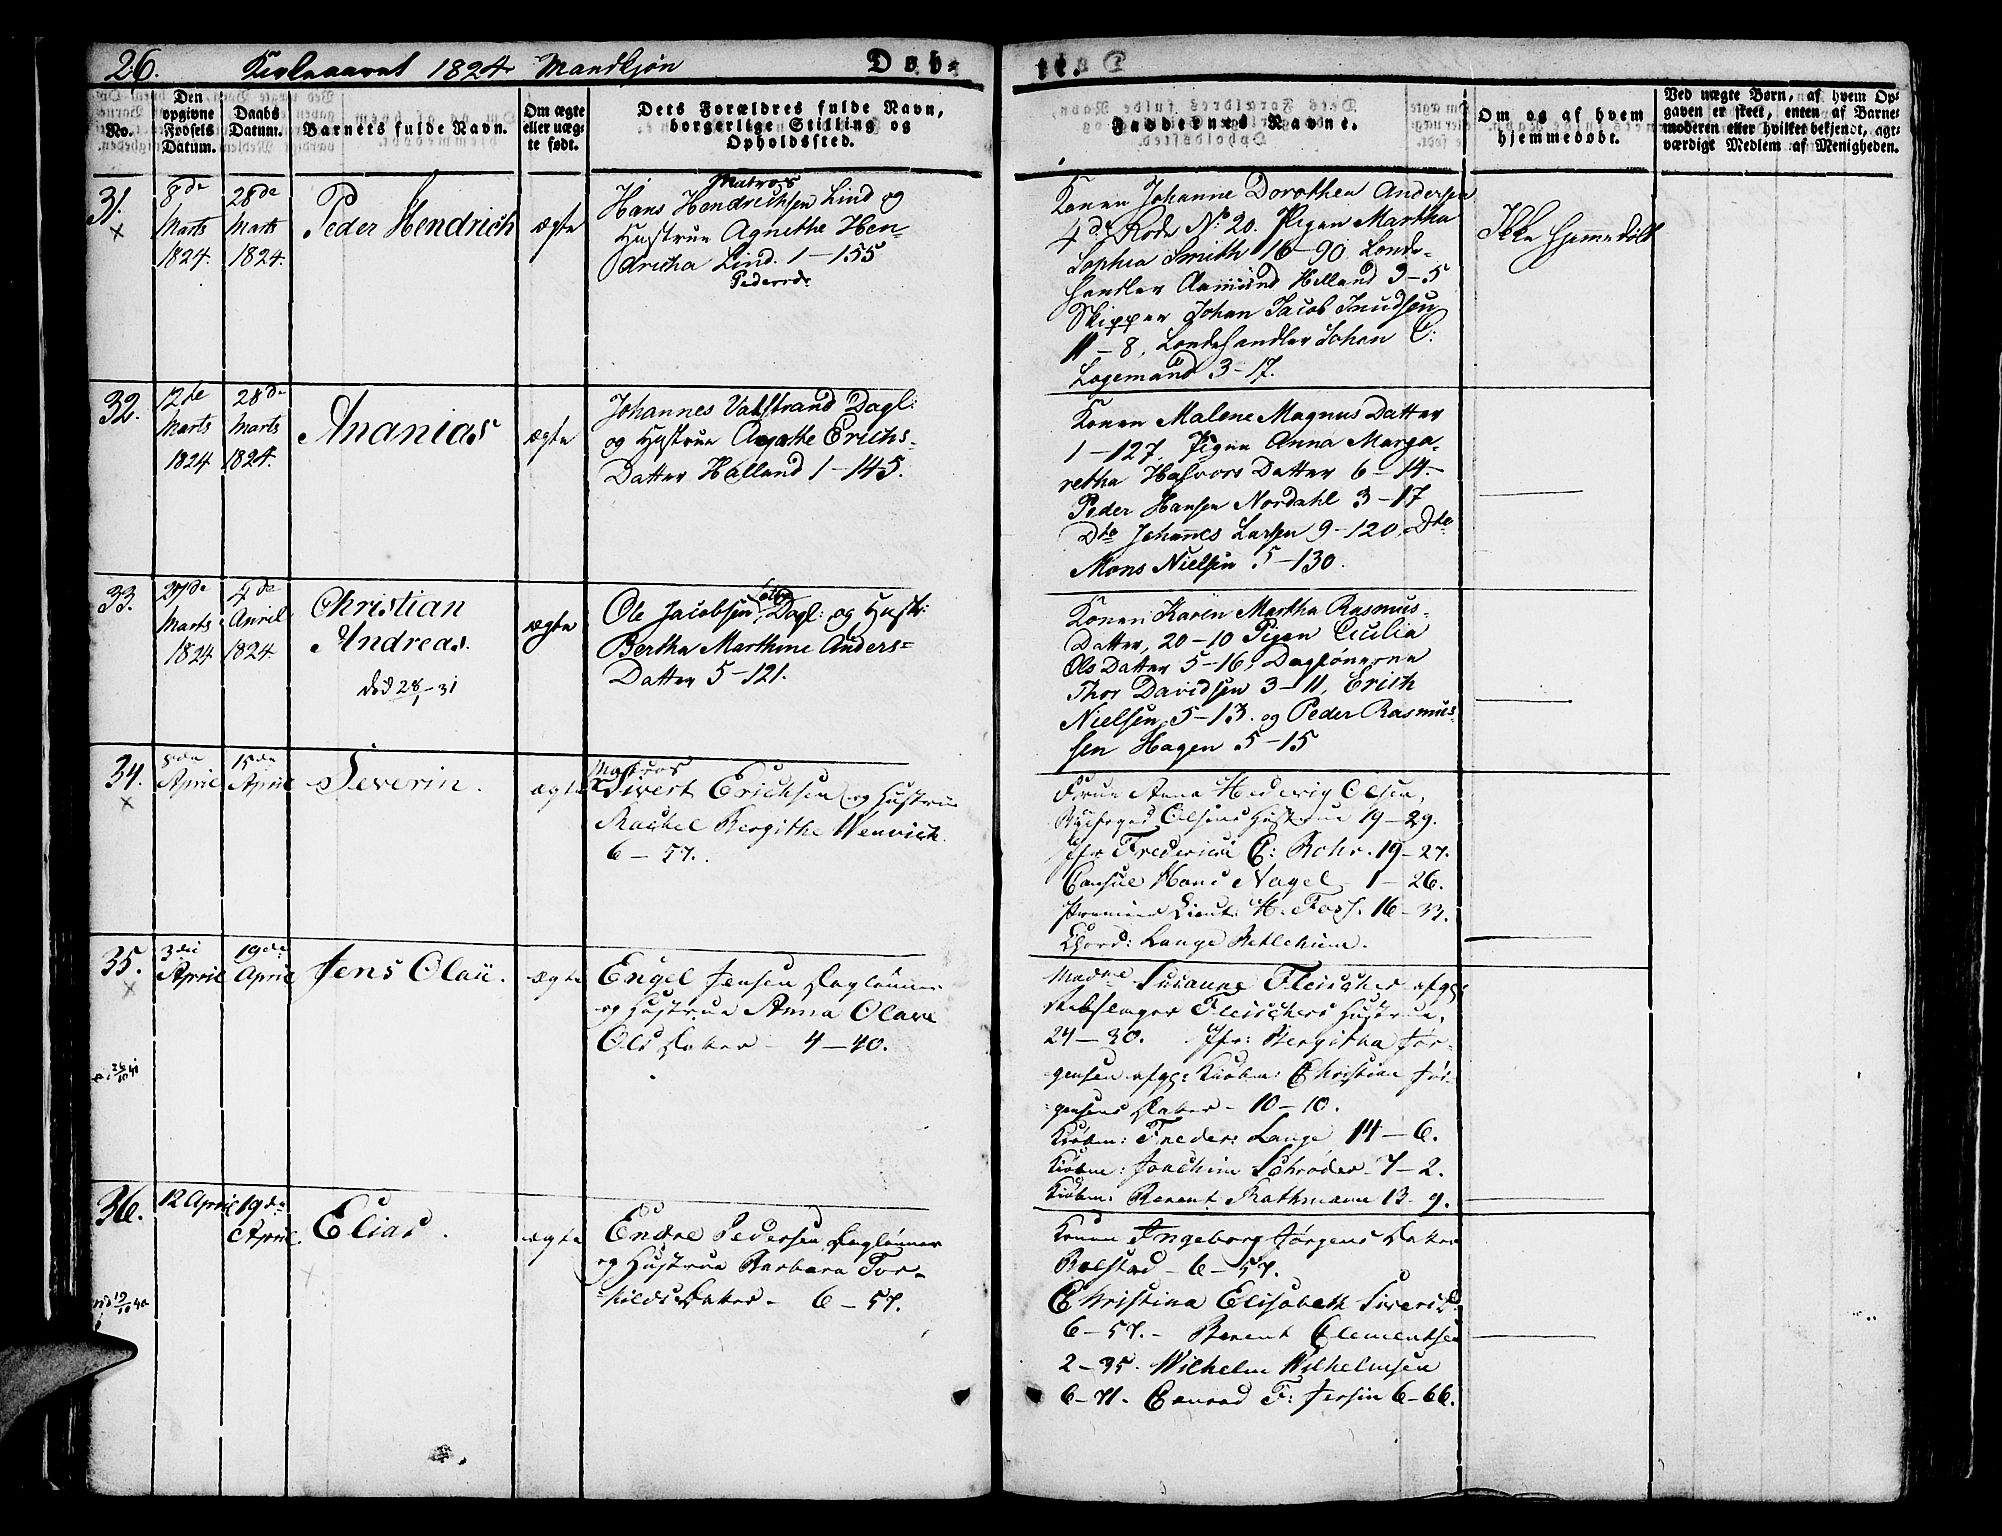 26. Kirkeaaret 1824 Mandkjøn Døb-
te.
No.
Den opgivne Fødsels Datum.
Daabs Datum.
Barnets fulde Navn.
Om ægte eller uæg-te født.
Dets Forældres fulde Navn, borgerlige Stilling og Opholdssted.
Faddernes Navne.
Om og af hvem hjemmedøbt.
Ved uægte Børn, af hvem Op-
gaven er skeet, enten af Barne-
moderen eller hvilket bekjendt, agt-
værdigt Medlem af Menigheden.
31.
×
8de
Marts
1824.
28de
Marts
1824.
Peder Hendrich
ægte
Matros
Hans Hendrichsen Lind og
Hustrue Agnethe Hen-
dricha Lind. 1-155
Konen Johanne Dorothea Andersen
4de Rode No 20. Pigen Martha
Sophia Smith 16-90.
Handler Aamund Helland 3-5
Skipper Johan Jacob Knudsen
11-8, Johan C:
Logemand 3-17.
Ikke hjemmedøbt
32.
12te
Marts
1824
28de
Marts
1824.
Ananias
ægte
Johannes Vatstrand Dagl:
og Hustrue Agathe Erichs-
Datter Helland 1-145.
Konen Malene Magnus Datter
1-127. Pigen Anna Marga-
retha Halvors Datter 6-14-
Peder Hansen Nordahl 3-17
Dto Johannes Larsen 9-120, Dto
Mons Nielsen 5-130.
33.
27de
Marts
1824
4de
April
1824.
Christian
Andreas.
død 28/1-31
ægte
Ole Jacobsen Dagl: og Hustr:
Bertha Marthine Anders=
Datter 5-121.
Konen Karen Martha Rasmus-
Datter, 20-10 Pigen Cicilia
Ols Datter 5-16, Daglønerne
Thor Davidsen 3-11, Erich
Nielsen 5-13. og Peder Rasmus-
sen Hagen 5-15
34.
×
April
15de
April
Severin.
ægte
Matros
Sivert Erichsen og Hustrue
Rachel Bergithe Wenrich
6-57.
Frue Anna Hedevig Olsen,
Olsens Hustrue 19-29.
Jfr Frederice C: Rohr. 19-27.
Consul Hans Nagel 1-26.
Premier Lieut: H. Foss. 16-33.
Lange
35.
×
3die
April
19de
April
Jens Olaii.
ægte
Engel Jensen Dagløner
og Hustrue Anna Olave
Ols Datter - 4-40.
Madme Susanne Fleischer afg:
Rebslager Fleischers Hustrue,
24-30. Jfr: Bergitha Jør-
gensen afg: Kiøbm: Christian Jør-
gensens Datter - 10-10.
Kiøbm: Freder: Lange 14-6.
Kiøbm: Joachim Schrøder 7-2.
Kiøbm: Berent Rathmann 13-9.
36.
12 April
19de
April.
Elias.
×
ægte
Endre Pedersen Dagløner
og Hustrue Barbara Tor-
kilds Datter - 6-57.
Konen Ingeborg Jørgens Datter
Rolstad - 6-57.
Christina Elisabeth
6-57. - Berent Clementsen
2-35. Wilhelm Wilhelmsen
6-71. Conrad F: Jersin 6-66.